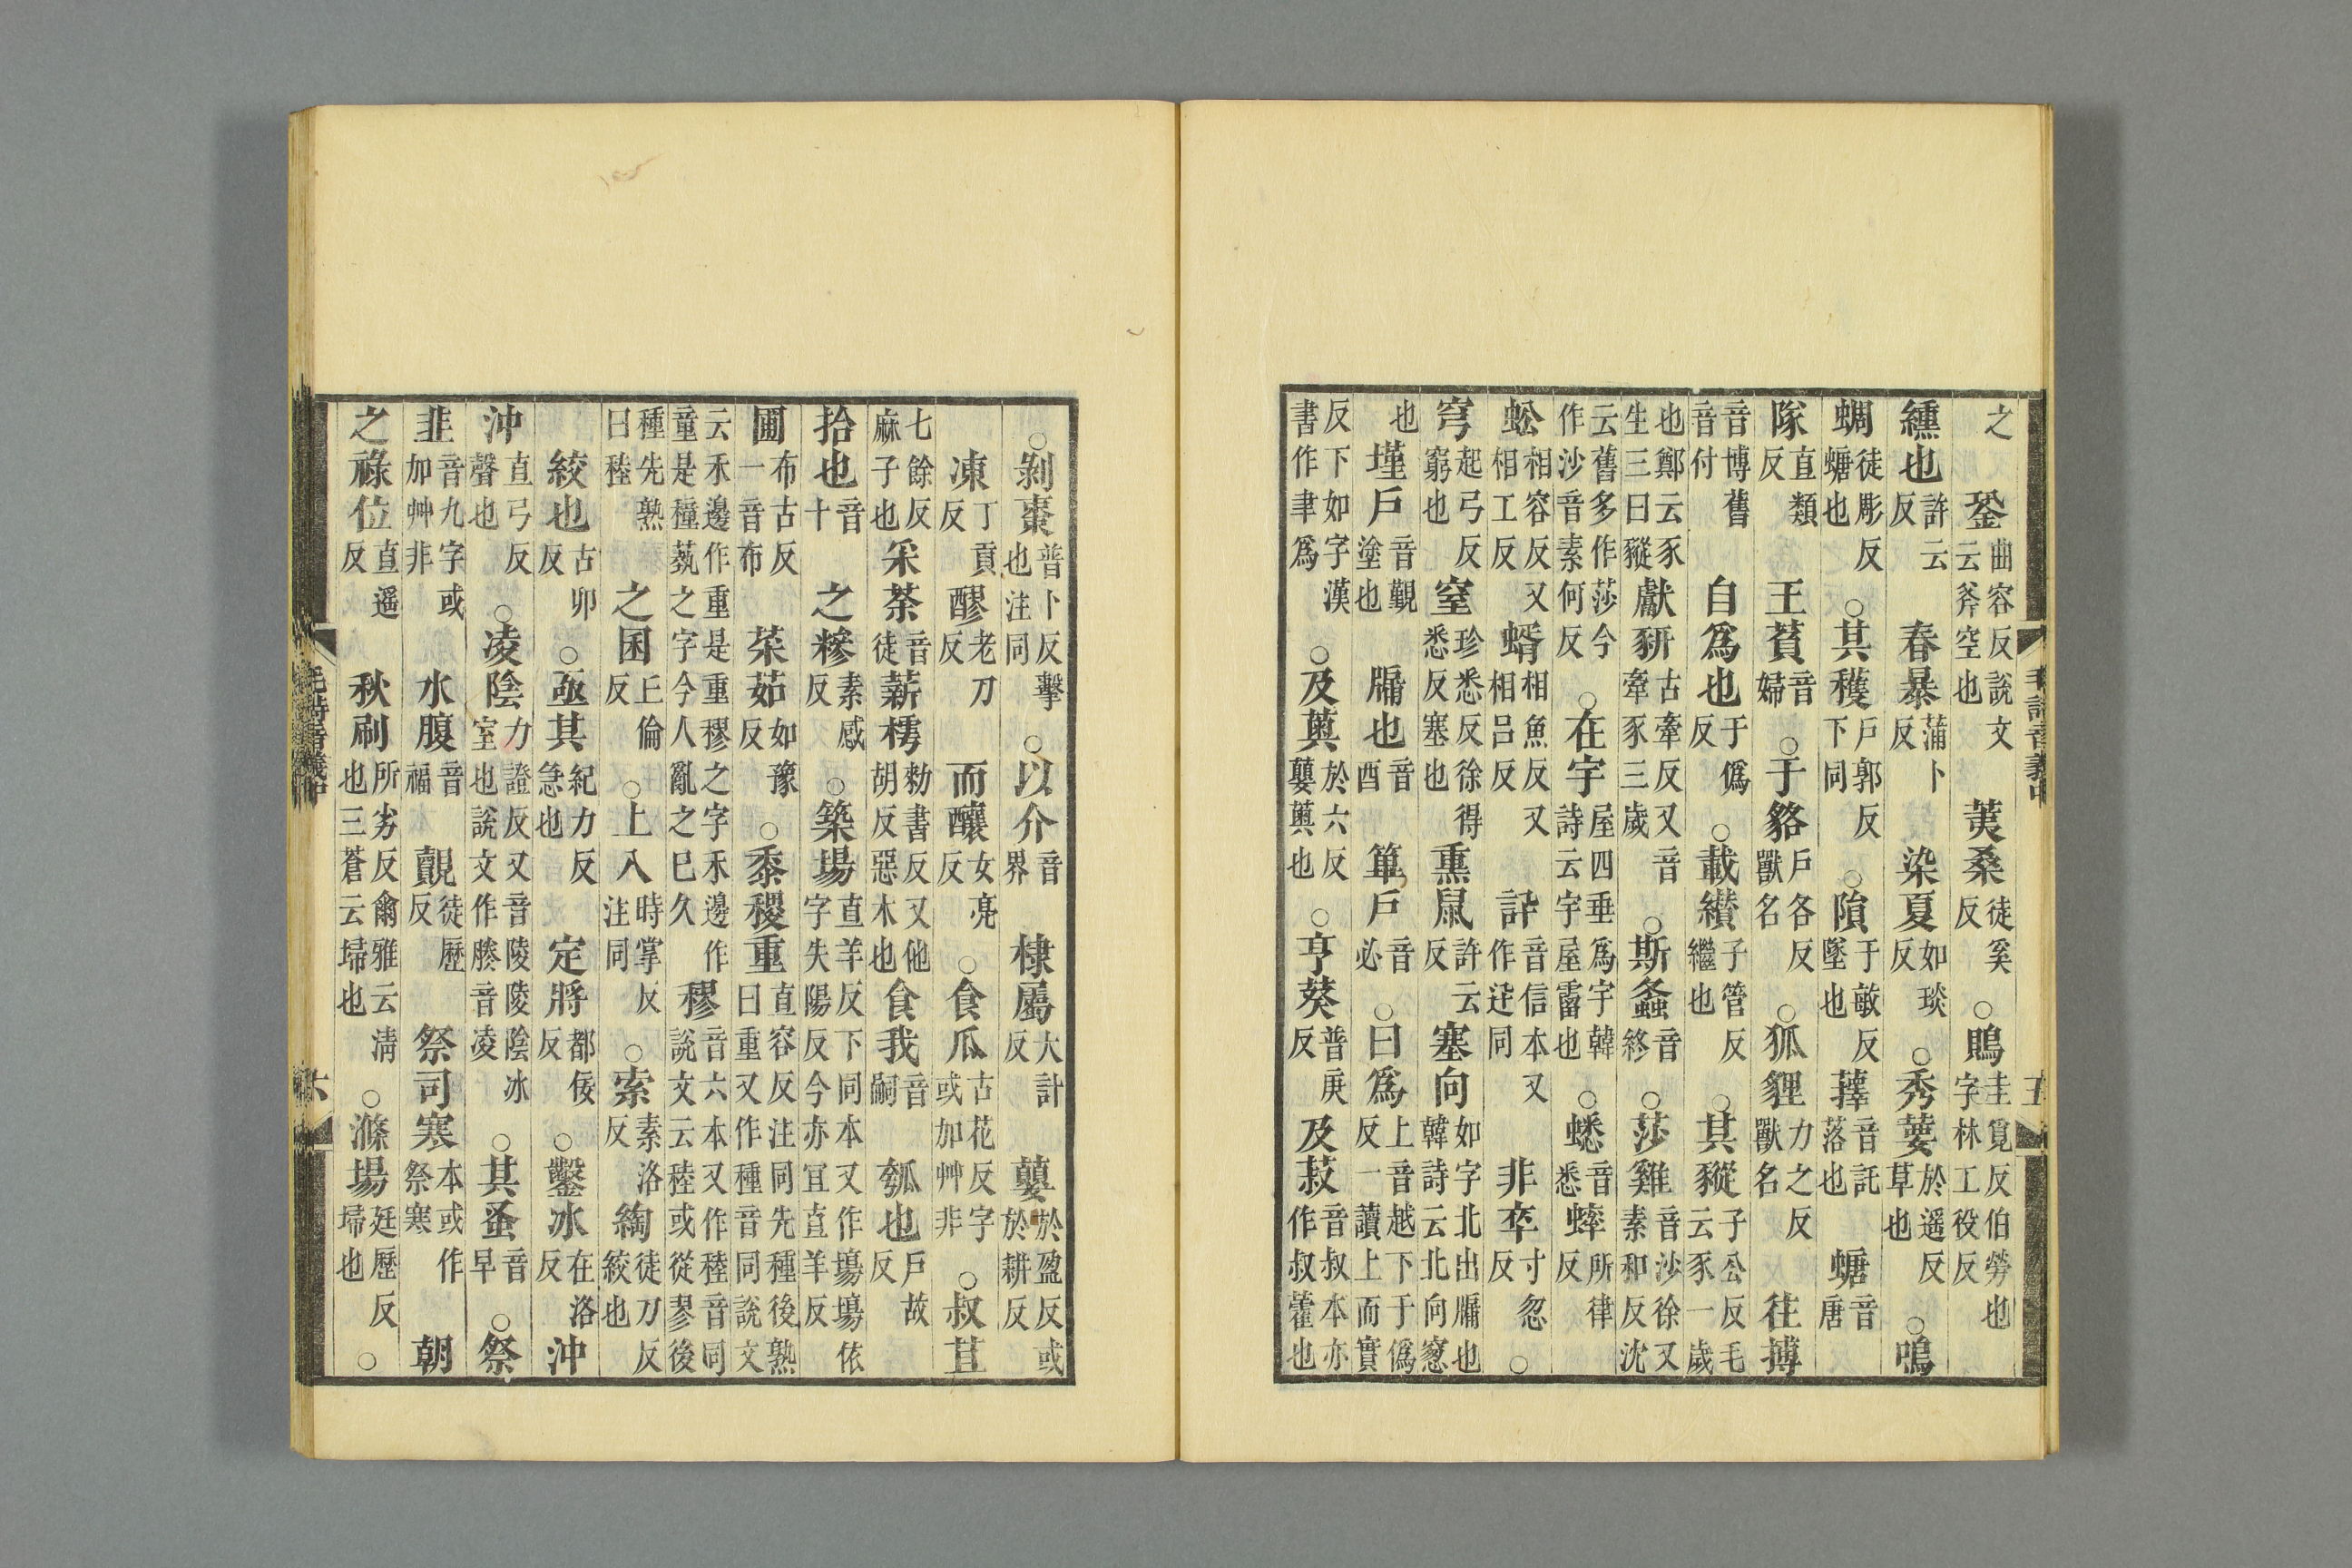 之　銎曲容反說文云斧空也　荑桑徒奚反○鵙圭覓反伯勞也字林工役反
纁也許云反　春暴蒲卜反　染夏如琰反○秀葽於遥反草也○鳴
蜩徒彫反螗也○其穫戶郭反下同○隕于敏反墜也蘀音託落也　螗音唐
隊直類反　王萯音婦○于貉戶各反獸名○狐貍力之反獸名　往搏
音博舊音付　自爲也于僞反○載纘子管反繼也○其豵子公反毛云豕一歲
也鄭云豕生三曰豵　獻豜古牽反又音牽豕三歲○斯螽音終○莎雞音沙徐又素和反沈
云舊多作莎今作沙音素何反○在宇屋四垂爲宇韓詩云宇屋霤也○蟋音悉蟀所律反
蚣相容反又相工反蝑相魚反又相吕反　訊音信本又作迅同　非卒寸忽反○
穹起弓反窮也　窒珍悉反徐得悉反塞也　熏鼠許云反　塞向如字北出牖也韓詩云北向窻
也　墐戶音覲塗也　牖也音酉　篳戶音必○曰爲上音越下于僞反一讀上而實
反下如字漢書作聿爲○及薁於六反蘡薁也○亨葵普庚反　及菽音叔本亦作叔藿也
毛詩音義中　五
○剝棗普卜反擊也注同○以介音界　棣屬大計反　蘡於盈反或於耕反
凍丁貢反　醪老刀反　而釀女亮反○食瓜古花反字或加艸非○叔苴
七餘反麻子也　采荼音徒薪樗勑書反又他胡反惡木也　食我音嗣　瓠也戶故反
拾也音十　之糝素感反○築場直羊反下同本又作塲塲依字失陽反今亦宜直羊反
圃布古反一音布　菜茹如豫反○黍稷重直容反注同先種後熟曰重又作種音同說文
云禾邊作重是重穋之字禾邊作童是穜蓺之字今人亂之已久　穋音六本又作稑音同說文云稑或從翏後
種先熟曰稑　之囷丘倫反○上入時掌反注同○索素洛反　綯徒刀反絞也
絞也古卯反○亟其紀力反急也　定將都佞反○鑿冰在洛反　沖
沖直弓反聲也○凌陰力證反又音陵陵陰冰室也說文作䐺音凌○其蚤音早○祭
韭音九字或加艸非　水腹音福　覿徒歷反　祭司寒本或作祭寒　朝
之祿位直遥反　秋刷所劣反爾雅云清也三蒼云埽也○滌場廷歷反埽也○
毛詩音義中　六